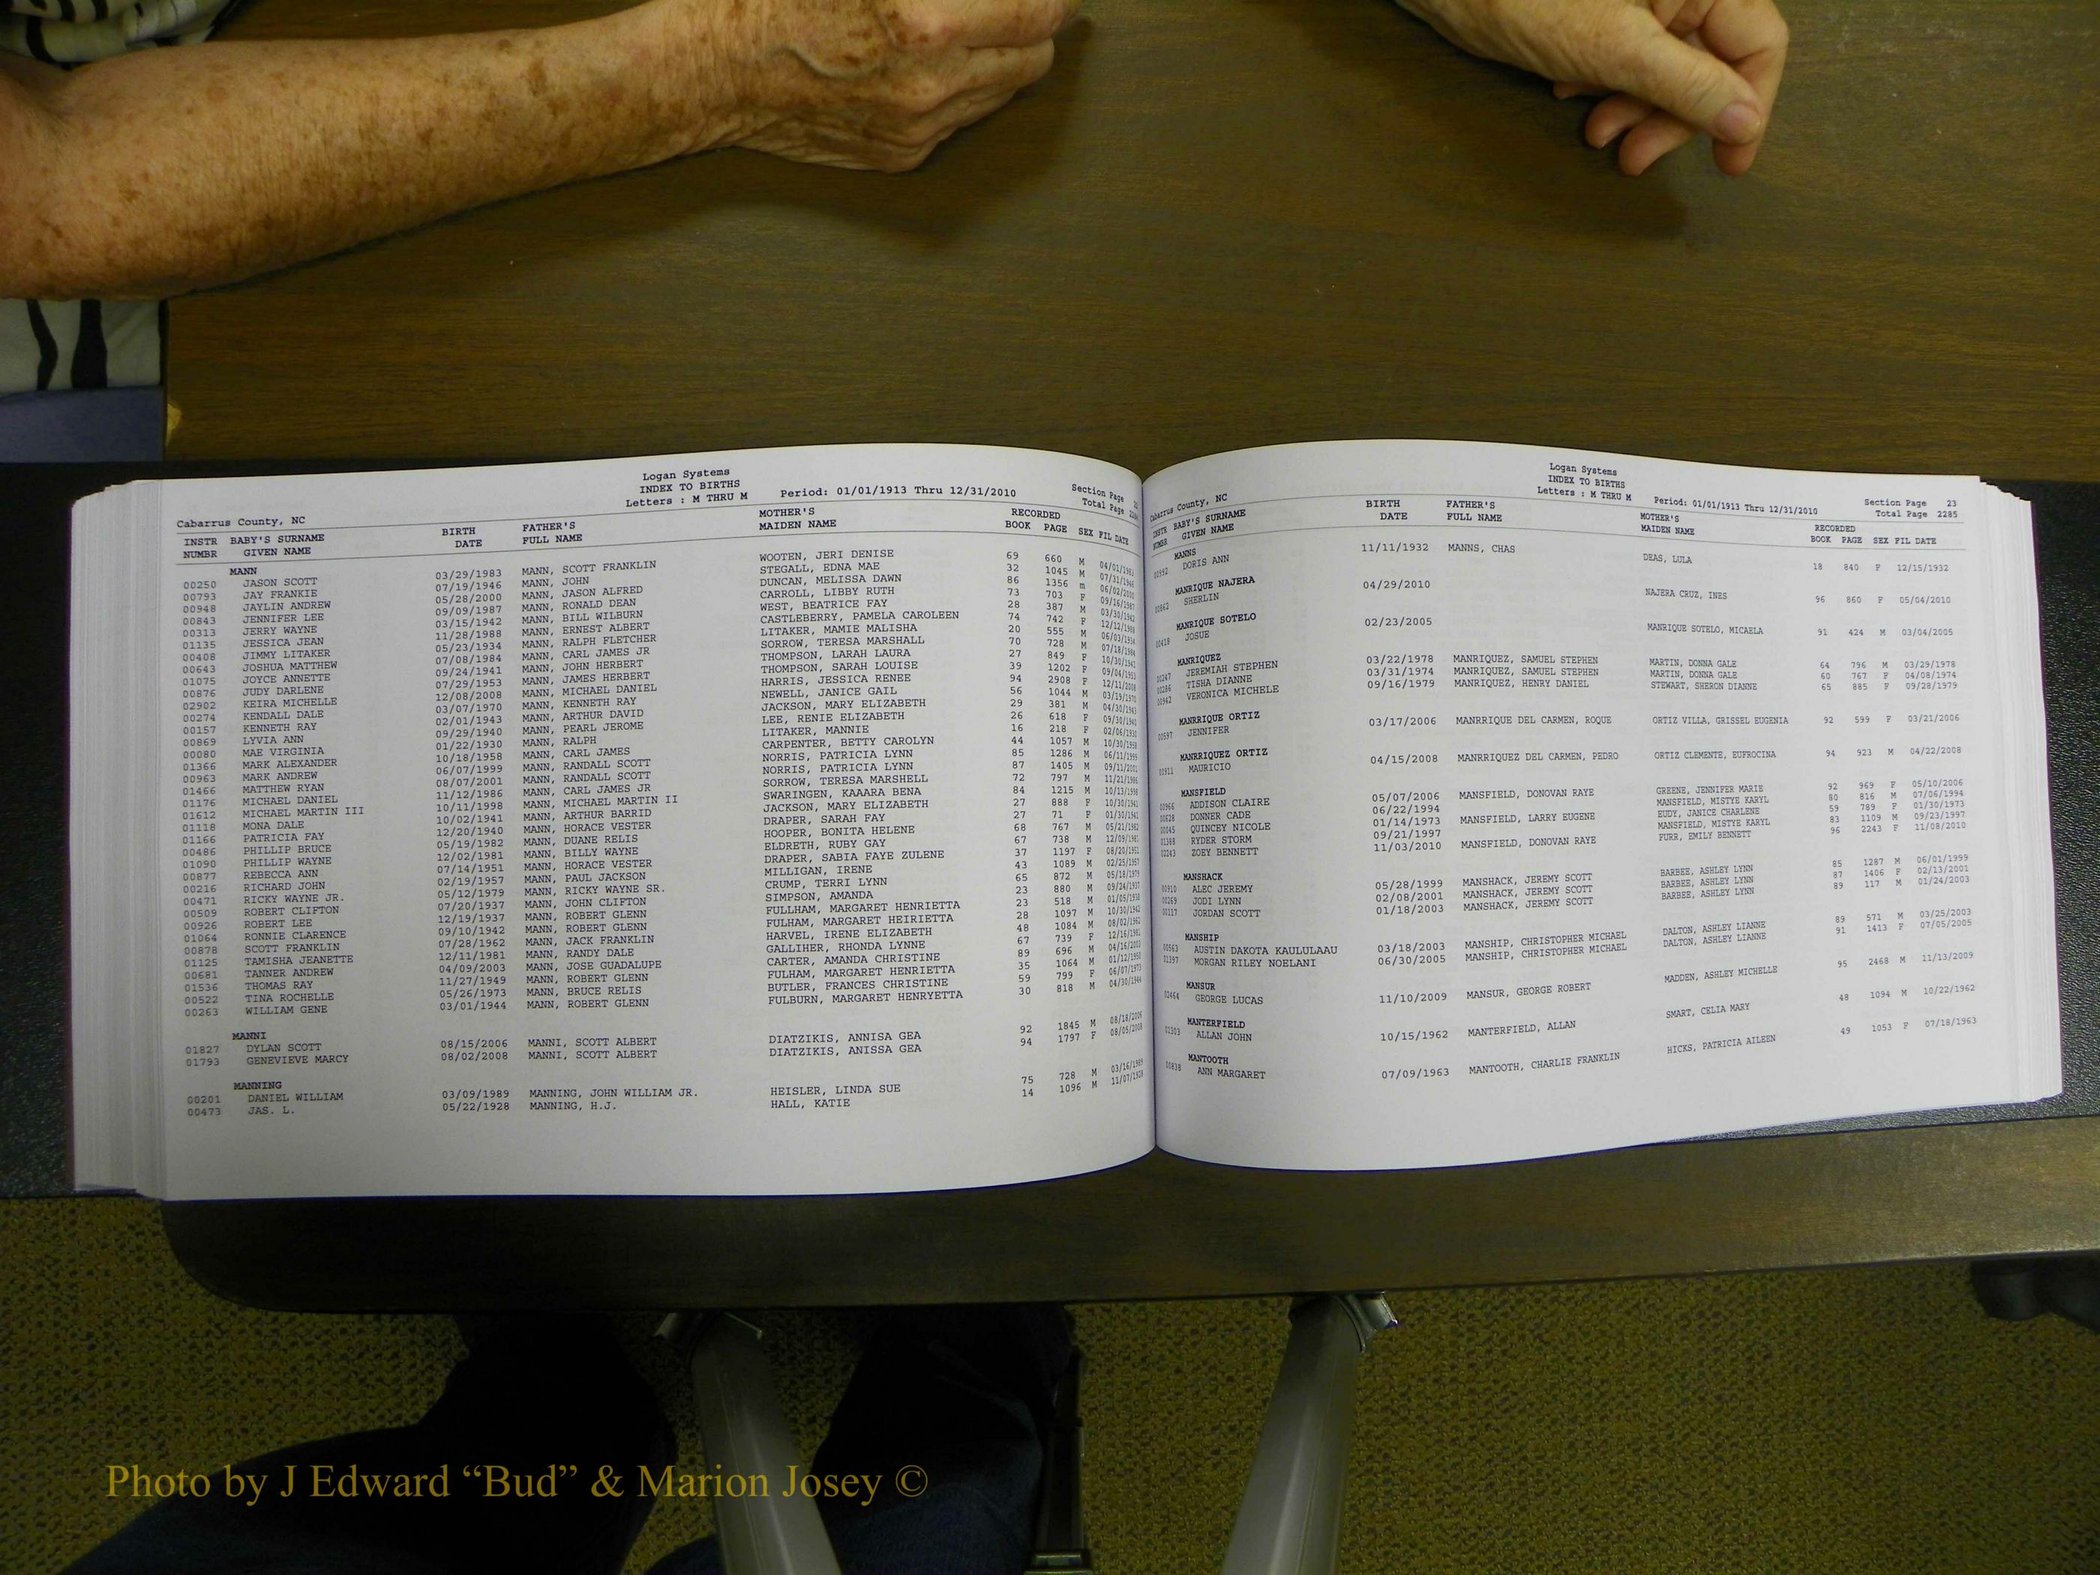 Logan Systems
INDEX TO BIRTHS
Letters : M THRU M Period: 01/01/1913 Thru 12/31/2010
Section Page
Total Page
Cabarrus County, NC
INSTR BABY'S SURNAME BIRTH FATHER'S MOTHER'S RECORDED
NUMBR GIVEN NAME DATE FULL NAME MAIDEN NAME BOOK PAGE SEX FIL DATE
MANN
00250 JASON SCOTT 03/29/1983 MANN, SCOTT FRANKLIN WOOTEN, JERI DENISE 69 660 M 04/01/1983
00793 JAY FRANKIE 07/19/1946 MANN, JOHN STEGALL, EDNA MAE 32 1045 M 07/31/1946
00948 JAYLIN ANDREW 05/28/2000 MANN, JASON ALFRED DUNCAN, MELISSA DAWN 86 1356 m 06/02/2000
00843 JENNIFER LEE 09/09/1987 MANN, RONALD DEAN CARROLL, LIBBY RUTH 73 703 F 09/16/1987
00313 JERRY WAYNE 03/15/1942 MANN, BILL WILBURN WEST, BEATRICE FAY 28 387 M 03/30/1942
01135 JESSICA JEAN 11/28/1988 MANN, ERNEST ALBERT CASTLEBERRY, PAMELA CAROLEEN 74 742 F 12/12/1988
00408 JIMMY LITAKER 05/23/1934 MANN, RALPH FLETCHER LITAKER, MAMIE MALISHA 20 555 M 06/03/1934
00643 JOSHUA MATTHEW 07/08/1984 MANN, CARL JAMES JR SORROW, TERESA MARSHALL 70 728 M 07/18/1984
01075 JOYCE ANNETTE 09/24/1941 MANN, JOHN HERBERT THOMPSON, LARAH LAURA 27 849 F 10/30/1941
00876 JUDY DARLENE 07/29/1953 MANN, JAMES HERBERT THOMPSON, SARAH LOUISE 39 1202 F 09/04/1953
02902 KEIRA MICHELLE 12/08/2008 MANN, MICHAEL DANIEL HARRIS, JESSICA RENEE 94 2908 F 12/11/2008
00274 KENDALL DALE 03/07/1970 MANN, KENNETH RAY NEWELL, JANICE GAIL 56 1044 M 03/19/1970
00157 KENNETH RAY 02/01/1943 MANN, ARTHUR DAVID JACKSON, MARY ELIZABETH 29 381 M 04/30/1943
00869 LYVIA ANN 09/29/1940 MANN, PEARL JEROME LEE, RENIE ELIZABETH 26 618 F 09/30/1940
00080 MAE VIRGINIA 01/22/1930 MANN, RALPH LITAKER, MANNIE 16 218 F 02/06/1930
01366 MARK ALEXANDER 10/18/1958 MANN, CARL JAMES CARPENTER, BETTY CAROLYN 44 1057 M 10/30/1958
00963 MARK ANDREW 06/07/1999 MANN, RANDALL SCOTT NORRIS, PATRICIA LYNN 85 1286 M 06/11/1999
01466 MATTHEW RYAN 08/07/2001 MANN, RANDALL SCOTT NORRIS, PATRICIA LYNN 87 1405 M 09/11/2001
01176 MICHAEL DANIEL 11/12/1986 MANN, CARL JAMES JR SORROW, TERESA MARSHELL 72 797 M 11/21/1986
01612 MICHAEL MARTIN III 10/11/1998 MANN, MICHAEL MARTIN II SWARINGEN, KAAARA BENA 84 1215 M 10/13/1998
01118 MONA DALE 10/02/1941 MANN, ARTHUR BARRID JACKSON, MARY ELIZABETH 27 888 F 10/30/1941
01166 PATRICIA FAY 12/20/1940 MANN, HORACE VESTER DRAPER, SARAH FAY 27 71 F 01/30/1941
00486 PHILLIP BRUCE 05/19/1982 MANN, DUANE RELIS HOOPER, BONITA HELENE 68 767 M 05/21/1982
01090 PHILLIP WAYNE 12/02/1981 MANN, BILLY WAYNE ELDRETH, RUBY GAY 67 738 M 12/09/1981
00877 REBECCA ANN 07/14/1951 MANN, HORACE VESTER DRAPER, SABIA FAYE ZULENE 37 1197 F 08/20/1951
00216 RICHARD JOHN 02/19/1957 MANN, PAUL JACKSON MILLIGAN, IRENE 43 1089 M 02/25/1957
00471 RICKY WAYNE JR. 05/12/1979 MANN, RICKY WAYNE SR. CRUMP, TERRI LYNN 65 872 M 05/18/1979
00509 ROBERT CLIFTON 07/20/1937 MANN, JOHN CLIFTON SIMPSON, AMANDA 23 880 M 09/24/1937
00926 ROBERT LEE 12/19/1937 MANN, ROBERT GLENN FULLHAM, MARGARET HENRIETTA 23 518 M 01/05/1938
01064 RONNIE CLARENCE 09/10/1942 MANN, ROBERT GLENN FULHAM, MARGARET HEIRIETTA 28 1097 M 10/30/1942
00878 SCOTT FRANKLIN 07/28/1962 MANN, JACK FRANKLIN HARVEL, IRENE ELIZABETH 48 1084 M 08/02/1962
01125 TAMISHA JEANETTE 12/11/1981 MANN, RANDY DALE GALLIHER, RHONDA LYNNE 67 739 F 12/16/1981
00681 TANNER ANDREW 04/09/2003 MANN, JOSE GUADALUPE CARTER, AMANDA CHRISTINE 89 696 M 04/16/2003
01536 THOMAS RAY 11/27/1949 MANN, ROBERT GLENN FULHAM, MARGARET HENRIETTA 35 1064 M 01/12/1950
00522 TINA ROCHELLE 05/26/1973 MANN, BRUCE RELIS BUTLER, FRANCES CHRISTINE 59 799 F 06/07/1973
00263 WILLIAM GENE 03/01/1944 MANN, ROBERT GLENN FULBURN, MARGARET HENRYETTA 30 818 M 04/30/1944
MANNI
01827 DYLAN SCOTT 08/15/2006 MANNI, SCOTT ALBERT DIATZIKIS, ANNISA GEA 92 1845 M 08/18/2006
01793 GENEVIEVE MARCY 08/02/2008 MANNI, SCOTT ALBERT DIATZIKIS, ANISSA GEA 94 1797 F 08/05/2008
MANNING
00201 DANIEL WILLIAM 03/09/1989 MANNING, JOHN WILLIAM JR. HEISLER, LINDA SUE 75 728 M 03/16/1989
00473 JAS. L. 05/22/1928 MANNING, H.J. HALL, KATIE 14 1096 M 11/07/1928
Logan Systems
INDEX TO BIRTHS
Letters : M THRU M Period: 01/01/1913 Thru 12/31/2010
Section Page 23
Total Page 2285
Cabarrus County, NC
INSTR BABY'S SURNAME BIRTH FATHER'S MOTHER'S RECORDED
NUMBR GIVEN NAME DATE FULL NAME MAIDEN NAME BOOK PAGE SEX FIL DATE
MANNS
00992 DORIS ANN 11/11/1932 MANNS, CHAS DEAS, LULA 18 840 F 12/15/1932
MANRIQUE NAJERA
00862 SHERLIN 04/29/2010 NAJERA CRUZ, INES 96 860 F 05/04/2010
MANRIQUE SOTELO
00418 JOSUE 02/23/2005 MANRIQUE SOTELO, MICAELA 91 424 M 03/04/2005
MANRIQUEZ
00247 JEREMIAH STEPHEN 03/22/1978 MANRIQUEZ, SAMUEL STEPHEN MARTIN, DONNA GALE 64 796 M 03/29/1978
00286 TISHA DIANNE 03/31/1974 MANRIQUEZ, SAMUEL STEPHEN MARTIN, DONNA GALE 60 767 F 04/08/1974
00962 VERONICA MICHELE 09/16/1979 MANRIQUEZ, HENRY DANIEL STEWART, SHERON DIANNE 65 885 F 09/28/1979
MANRRIQUE ORTIZ
00597 JENNIFER 03/17/2006 MANRRIQUE DEL CARMEN, ROQUE ORTIZ VILLA, GRISSEL EUGENIA 92 599 F 03/21/2006
MANRRIQUEZ ORTIZ
00911 MAURICIO 04/15/2008 MANRRIQUEZ DEL CARMEN, PEDRO ORTIZ CLEMENTE, EUFROCINA 94 923 M 04/22/2008
MANSFIELD
00966 ADDISON CLAIRE 05/07/2006 MANSFIELD, DONOVAN RAYE GREENE, JENNIFER MARIE 92 969 F 05/10/2006
00628 DONNER CADE 06/22/1994 MANSFIELD, MISTYE KARYL 80 816 M 07/06/1994
00045 QUINCEY NICOLE 01/14/1973 MANSFIELD, LARRY EUGENE EUDY, JANICE CHARLENE 59 789 F 01/30/1973
01388 RYDER STORM 09/21/1997 MANSFIELD, MISTYE KARYL 83 1109 M 09/23/1997
02243 ZOEY BENNETT 11/03/2010 MANSFIELD, DONOVAN RAYE FURR, EMILY BENNETT 96 2243 F 11/08/2010
MANSHACK
00910 ALEC JEREMY 05/28/1999 MANSHACK, JEREMY SCOTT BARBEE, ASHLEY LYNN 85 1287 M 06/01/1999
00269 JODI LYNN 02/08/2001 MANSHACK, JEREMY SCOTT BARBEE, ASHLEY LYNN 87 1406 F 02/13/2001
00117 JORDAN SCOTT 01/18/2003 MANSHACK, JEREMY SCOTT BARBEE, ASHLEY LYNN 89 117 M 01/24/2003
MANSHIP
00563 AUSTIN DAKOTA KAULULAAU 03/18/2003 MANSHIP, CHRISTOPHER MICHAEL DALTON, ASHLEY LIANNE 89 571 M 03/25/2003
01397 MORGAN RILEY NOELANI 06/30/2005 MANSHIP, CHRISTOPHER MICHAEL DALTON, ASHLEY LIANNE 91 1413 F 07/05/2005
MANSUR
02464 GEORGE LUCAS 11/10/2009 MANSUR, GEORGE ROBERT MADDEN, ASHLEY MICHELLE 95 2468 M 11/13/2009
MANTERFIELD
01303 ALLAN JOHN 10/15/1962 MANTERFIELD, ALLAN SMART, CELIA MARY 48 1094 M 10/22/1962
MANTOOTH
00838 ANN MARGARET 07/09/1963 MANTOOTH, CHARLIE FRANKLIN HICKS, PATRICIA AILEEN 49 1053 F 07/18/1963
Photo by J Edward “Bud” & Marion Josey ©